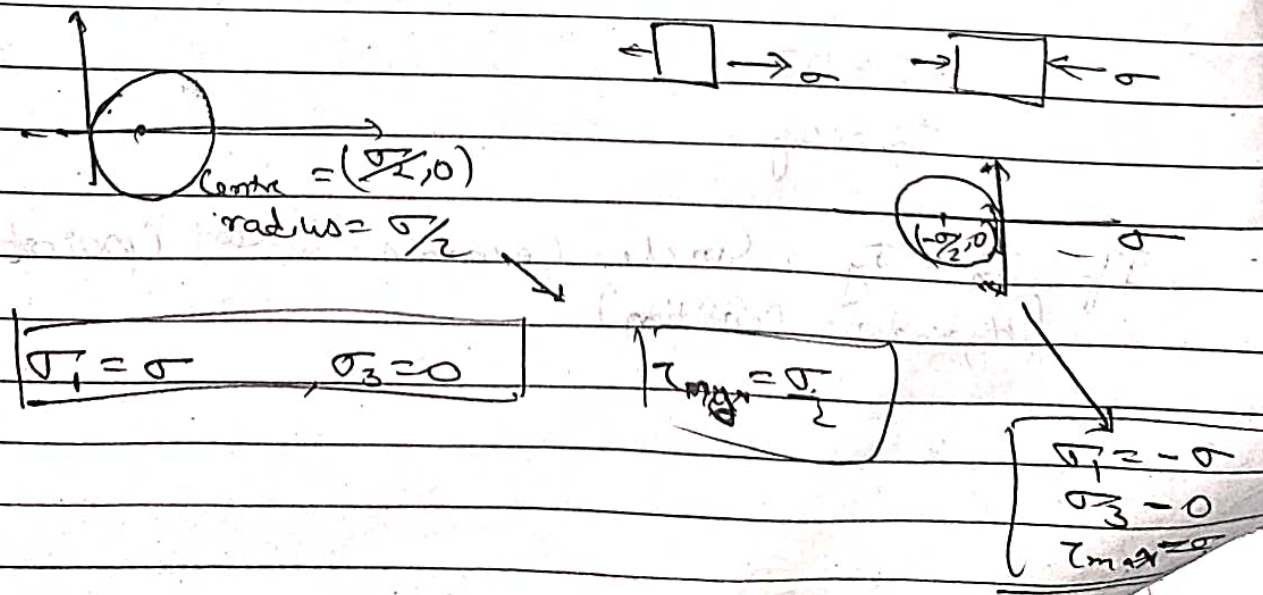 σ σ
Centre = (σ/2, 0)
radius = σ/2
(-σ/2, 0)
σ
σ₁ = σ , σ₃ = 0
τmax = σ/2
σ₁ = - σ
σ₃ - 0
τmax = σ